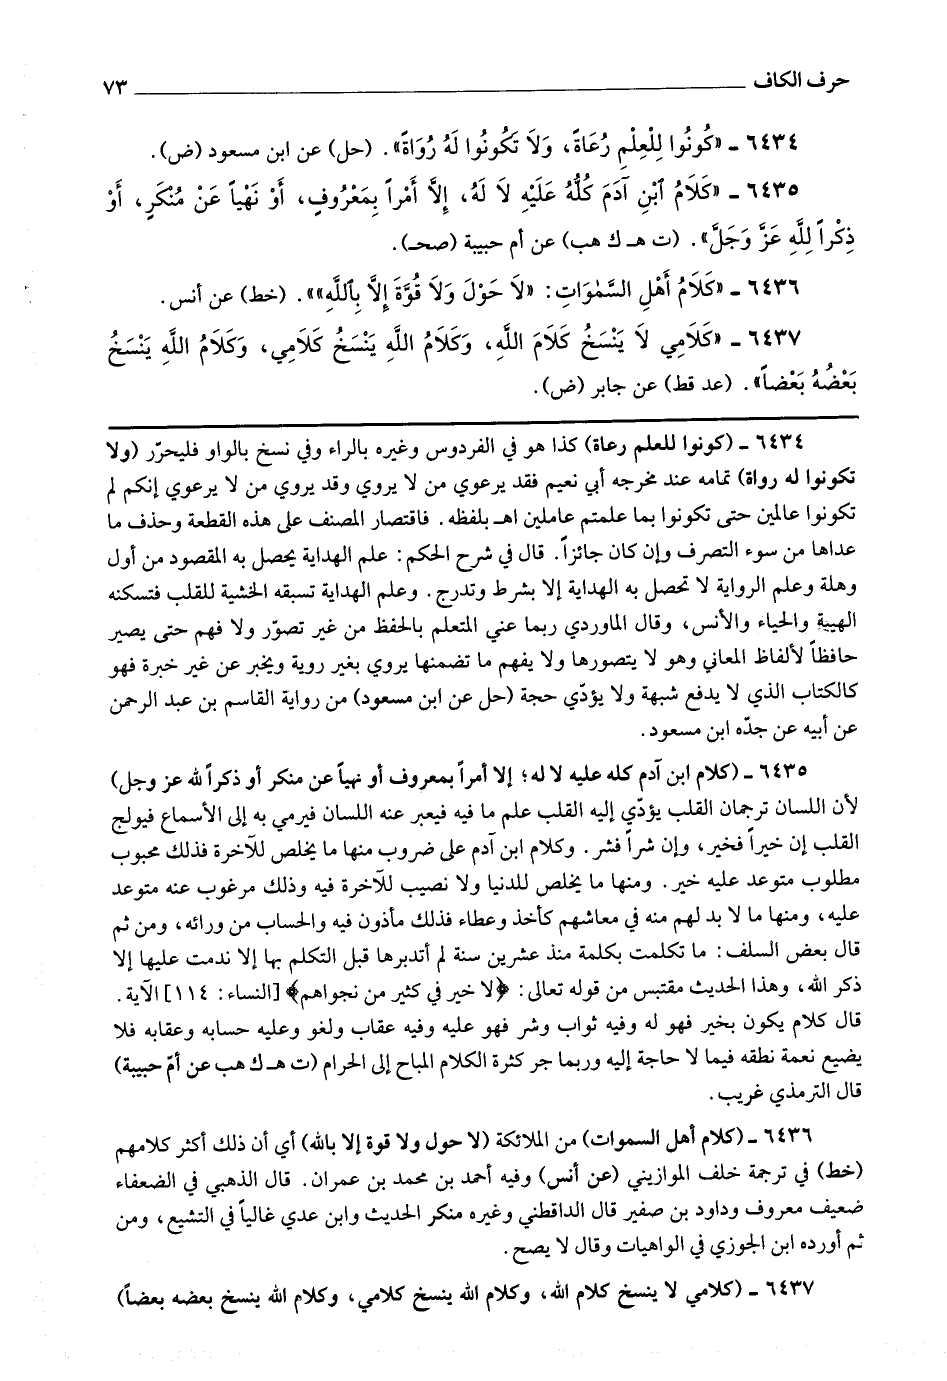 حرف الكاف ٧٣
٦٤٣٤ ـ «كُونُوا لِلْعِلْمِ رُعَاةً، وَلَا تَكُونُوا لَهُ رُوَاةً». (حل) عن ابن مسعود (ض).
٦٤٣٥ ـ «كَلَامُ ٱبْنِ آدَمَ كُلُّهُ عَلَيْهِ لَا لَهُ، إِلَّا أَمْراً بِمَعْرُوفٍ، أَوْ نَهْياً عَنْ مُنْكَرٍ، أَوْ
ذِكْراً لِلَّهِ عَزَّ وَجَلَّ». (ت هـ ك هب) عن أم حبيبة (صحـ).
٦٤٣٦ ـ «كَلَامُ أَهْلِ السَّمٰوَاتِ: «لَا حَوْلَ وَلَا قُوَّةَ إِلَّا بِٱللَّهِ»». (خط) عن أنس.
٦٤٣٧ ـ «كَلَامِي لَا يَنْسَخُ كَلَامَ اللَّهِ، وَكَلَامُ اللَّهِ يَنْسَخُ كَلَامِي، وَكَلَامُ اللَّهِ يَنْسَخُ
بَعْضُهُ بَعْضاً». (عد قط) عن جابر (ض).
٦٤٣٤ ـ (كونوا للعلم رعاة) كذا هو في الفردوس وغيره بالراء وفي نسخ بالواو فليحرّر (ولا
تكونوا له رواة) تمامه عند مخرجه أبي نعيم فقد يرعوي من لا يروي وقد يروي من لا يرعوي إنكم لم
تكونوا عالمين حتى تكونوا بما علمتم عاملين اهـ بلفظه. فاقتصار المصنف على هذه القطعة وحذف ما
عداها من سوء التصرف وإن كان جائزاً. قال في شرح الحكم: علم الهداية يحصل به المقصود من أول
وهلة وعلم الرواية لا تحصل به الهداية إلا بشرط وتدرج. وعلم الهداية تسبقه الخشية للقلب فتسكنه
الهيبة والحياء والأنس، وقال الماوردي ربما عني المتعلم بالحفظ من غير تصوّر ولا فهم حتى يصير
حافظاً لألفاظ المعاني وهو لا يتصورها ولا يفهم ما تضمنها يروي بغير روية ويخبر عن غير خبرة فهو
كالكتاب الذي لا يدفع شبهة ولا يؤدّي حجة (حل عن ابن مسعود) من رواية القاسم بن عبد الرحمن
عن أبيه عن جدّه ابن مسعود.
٦٤٣٥ ـ (كلام ابن آدم كله عليه لا له؛ إلا أمراً بمعروف أو نهياً عن منكر أو ذكراً لله عز وجل)
لأن اللسان ترجمان القلب يؤدّي إليه القلب علم ما فيه فيعبر عنه اللسان فيرمي به إلى الأسماع فيولج
القلب إن خيراً فخير، وإن شراً فشر. وكلام ابن آدم على ضروب منها ما يخلص للآخرة فذلك محبوب
مطلوب متوعد عليه خير. ومنها ما يخلص للدنيا ولا نصيب للآخرة فيه وذلك مرغوب عنه متوعد
عليه، ومنها ما لا بد لهم منه في معاشهم كأخذ وعطاء فذلك مأذون فيه والحساب من ورائه، ومن ثم
قال بعض السلف: ما تكلمت بكلمة منذ عشرين سنة لم أتدبرها قبل التكلم بها إلا ندمت عليها إلا
ذكر الله، وهذا الحديث مقتبس من قوله تعالى: ﴿لا خير في كثير من نجواهم﴾ [النساء: ١١٤] الآية.
قال كلام يكون بخير فهو له وفيه ثواب وشر فهو عليه وفيه عقاب ولغو وعليه حسابه وعقابه فلا
يضيع نعمة نطقه فيما لا حاجة إليه وربما جر كثرة الكلام المباح إلى الحرام (ت هـ ك هب عن أمّ حبيبة)
قال الترمذي غريب.
٦٤٣٦ ـ (كلام أهل السموات) من الملائكة (لا حول ولا قوة إلا بالله) أي أن ذلك أكثر كلامهم
(خط) في ترجمة خلف الموازيني (عن أنس) وفيه أحمد بن محمد بن عمران. قال الذهبي في الضعفاء
ضعيف معروف وداود بن صفير قال الداقطني وغيره منكر الحديث وابن عدي غالياً في التشيع، ومن
ثم أورده ابن الجوزي في الواهيات وقال لا يصح.
٦٤٣٧ ـ (كلامي لا ينسخ كلام الله، وكلام الله ينسخ كلامي، وكلام الله ينسخ بعضه بعضاً)